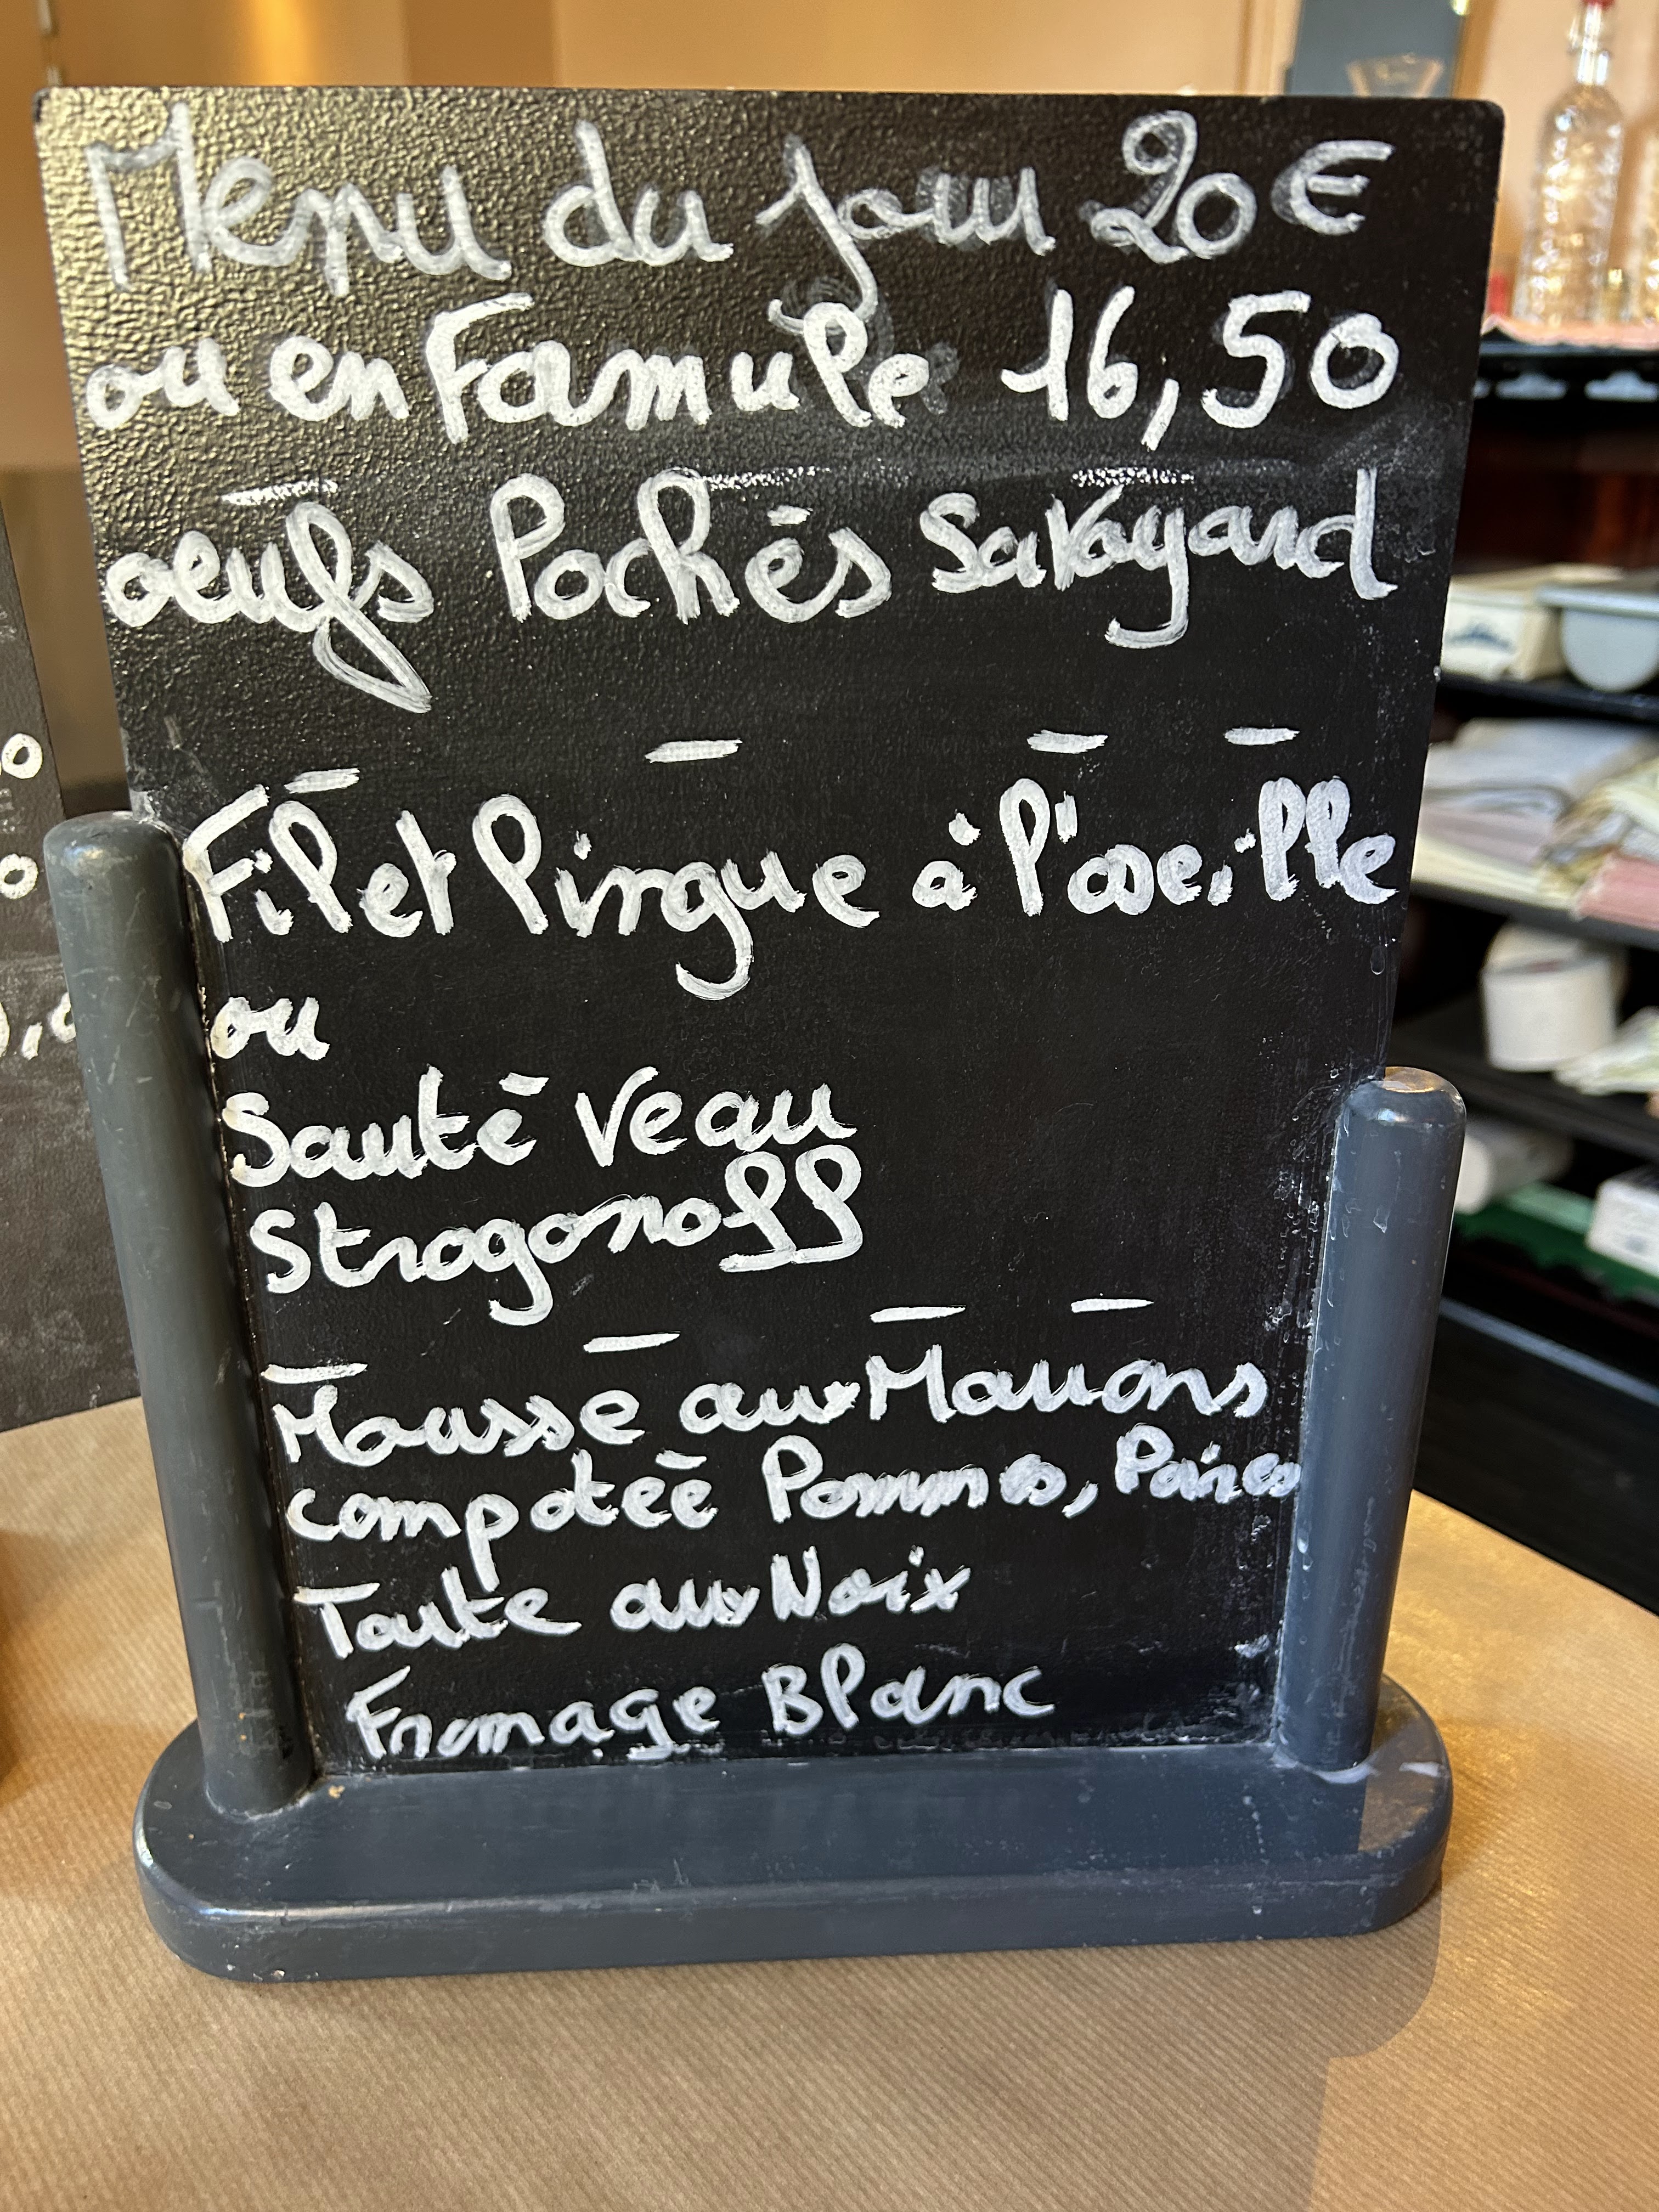 Menu du jour 20€
ou en Formule 16,50
oeufs Pochés Savoyard
Filet lingue à l'oseille
ou
Sauté Veau
Strogonoff
Mousse aux Marrons
compotée Pommes, Poires
Tarte aux Noix
Fromage Blanc